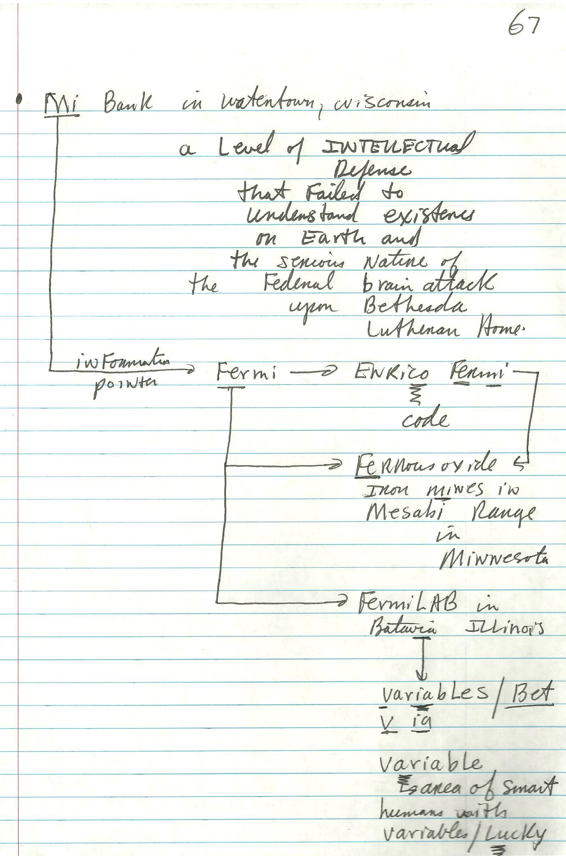 67
• Mi Bank in Watentown, Wisconsin
a Level of INTELLECTUAL
Defense
that Failed to
Undenstand existence
on Earth and
the senious Natune of
the Fedenal brain attack
upon Bethesda
Luthenan Home.
inFormation
pointer
Fermi → ENRICO Fenmi
code
FeRRous oxide
Iron mines in
Mesabi Range
in
Minnesota
FermiLAB in
Batavia ILLinois
variables / Bet
v ia
Variable
area of smart
humans with
variables / Lucky